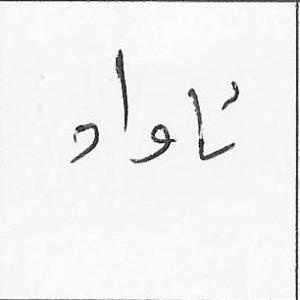 تاواد